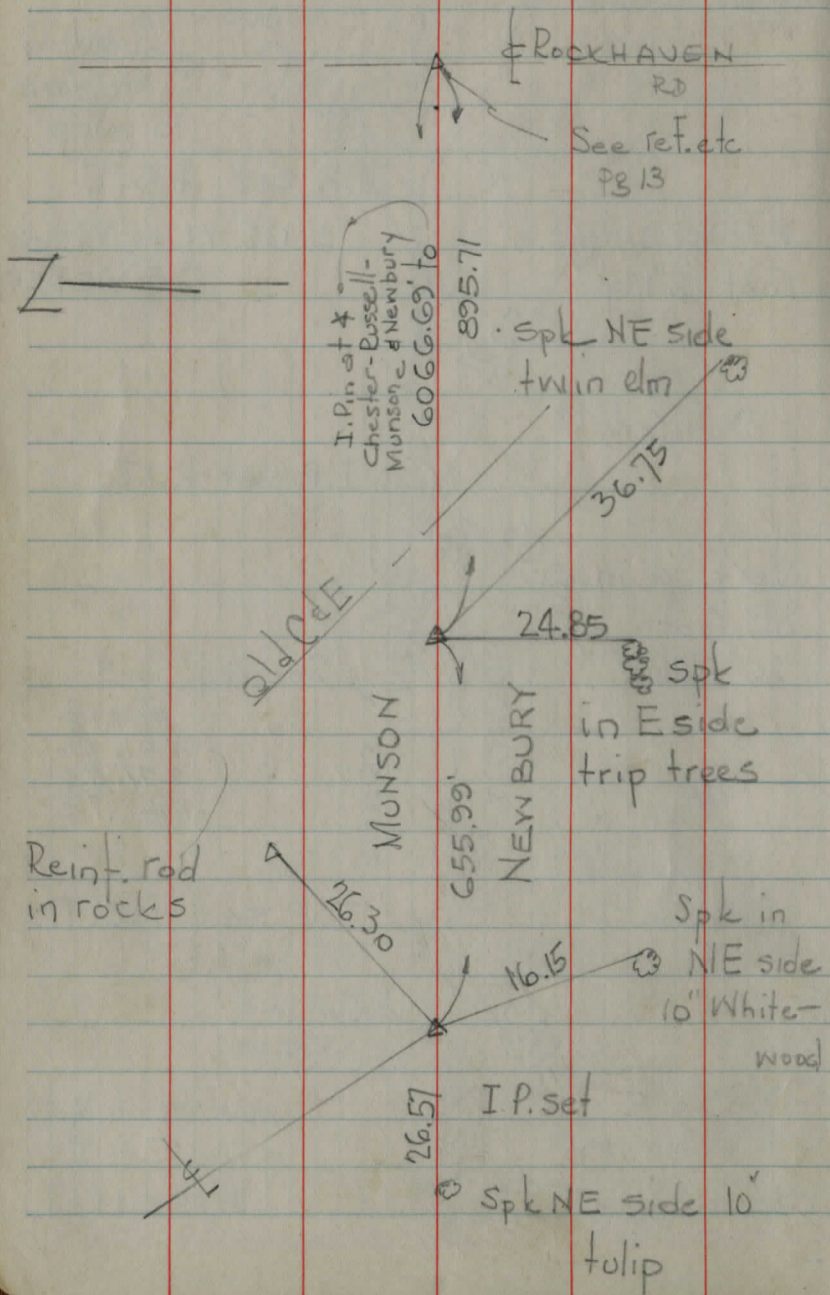 ℄ ROCKHAVEN
RD
See ref. etc
Pg 13
I. Pin at
Chester-Russell-
Munson & Newbury
6066.69' to
895.71
Spk NE side
twin elm
36.75
Old C&E
24.85
Spk
in E side
trip trees
MUNSON
655.99'
NEWBURY
Reinf. rod
in rocks
26.30
16.15
Spk in
NE side
10" White-
wood
26.57
I P. set
Spk NE side 10"
tulip